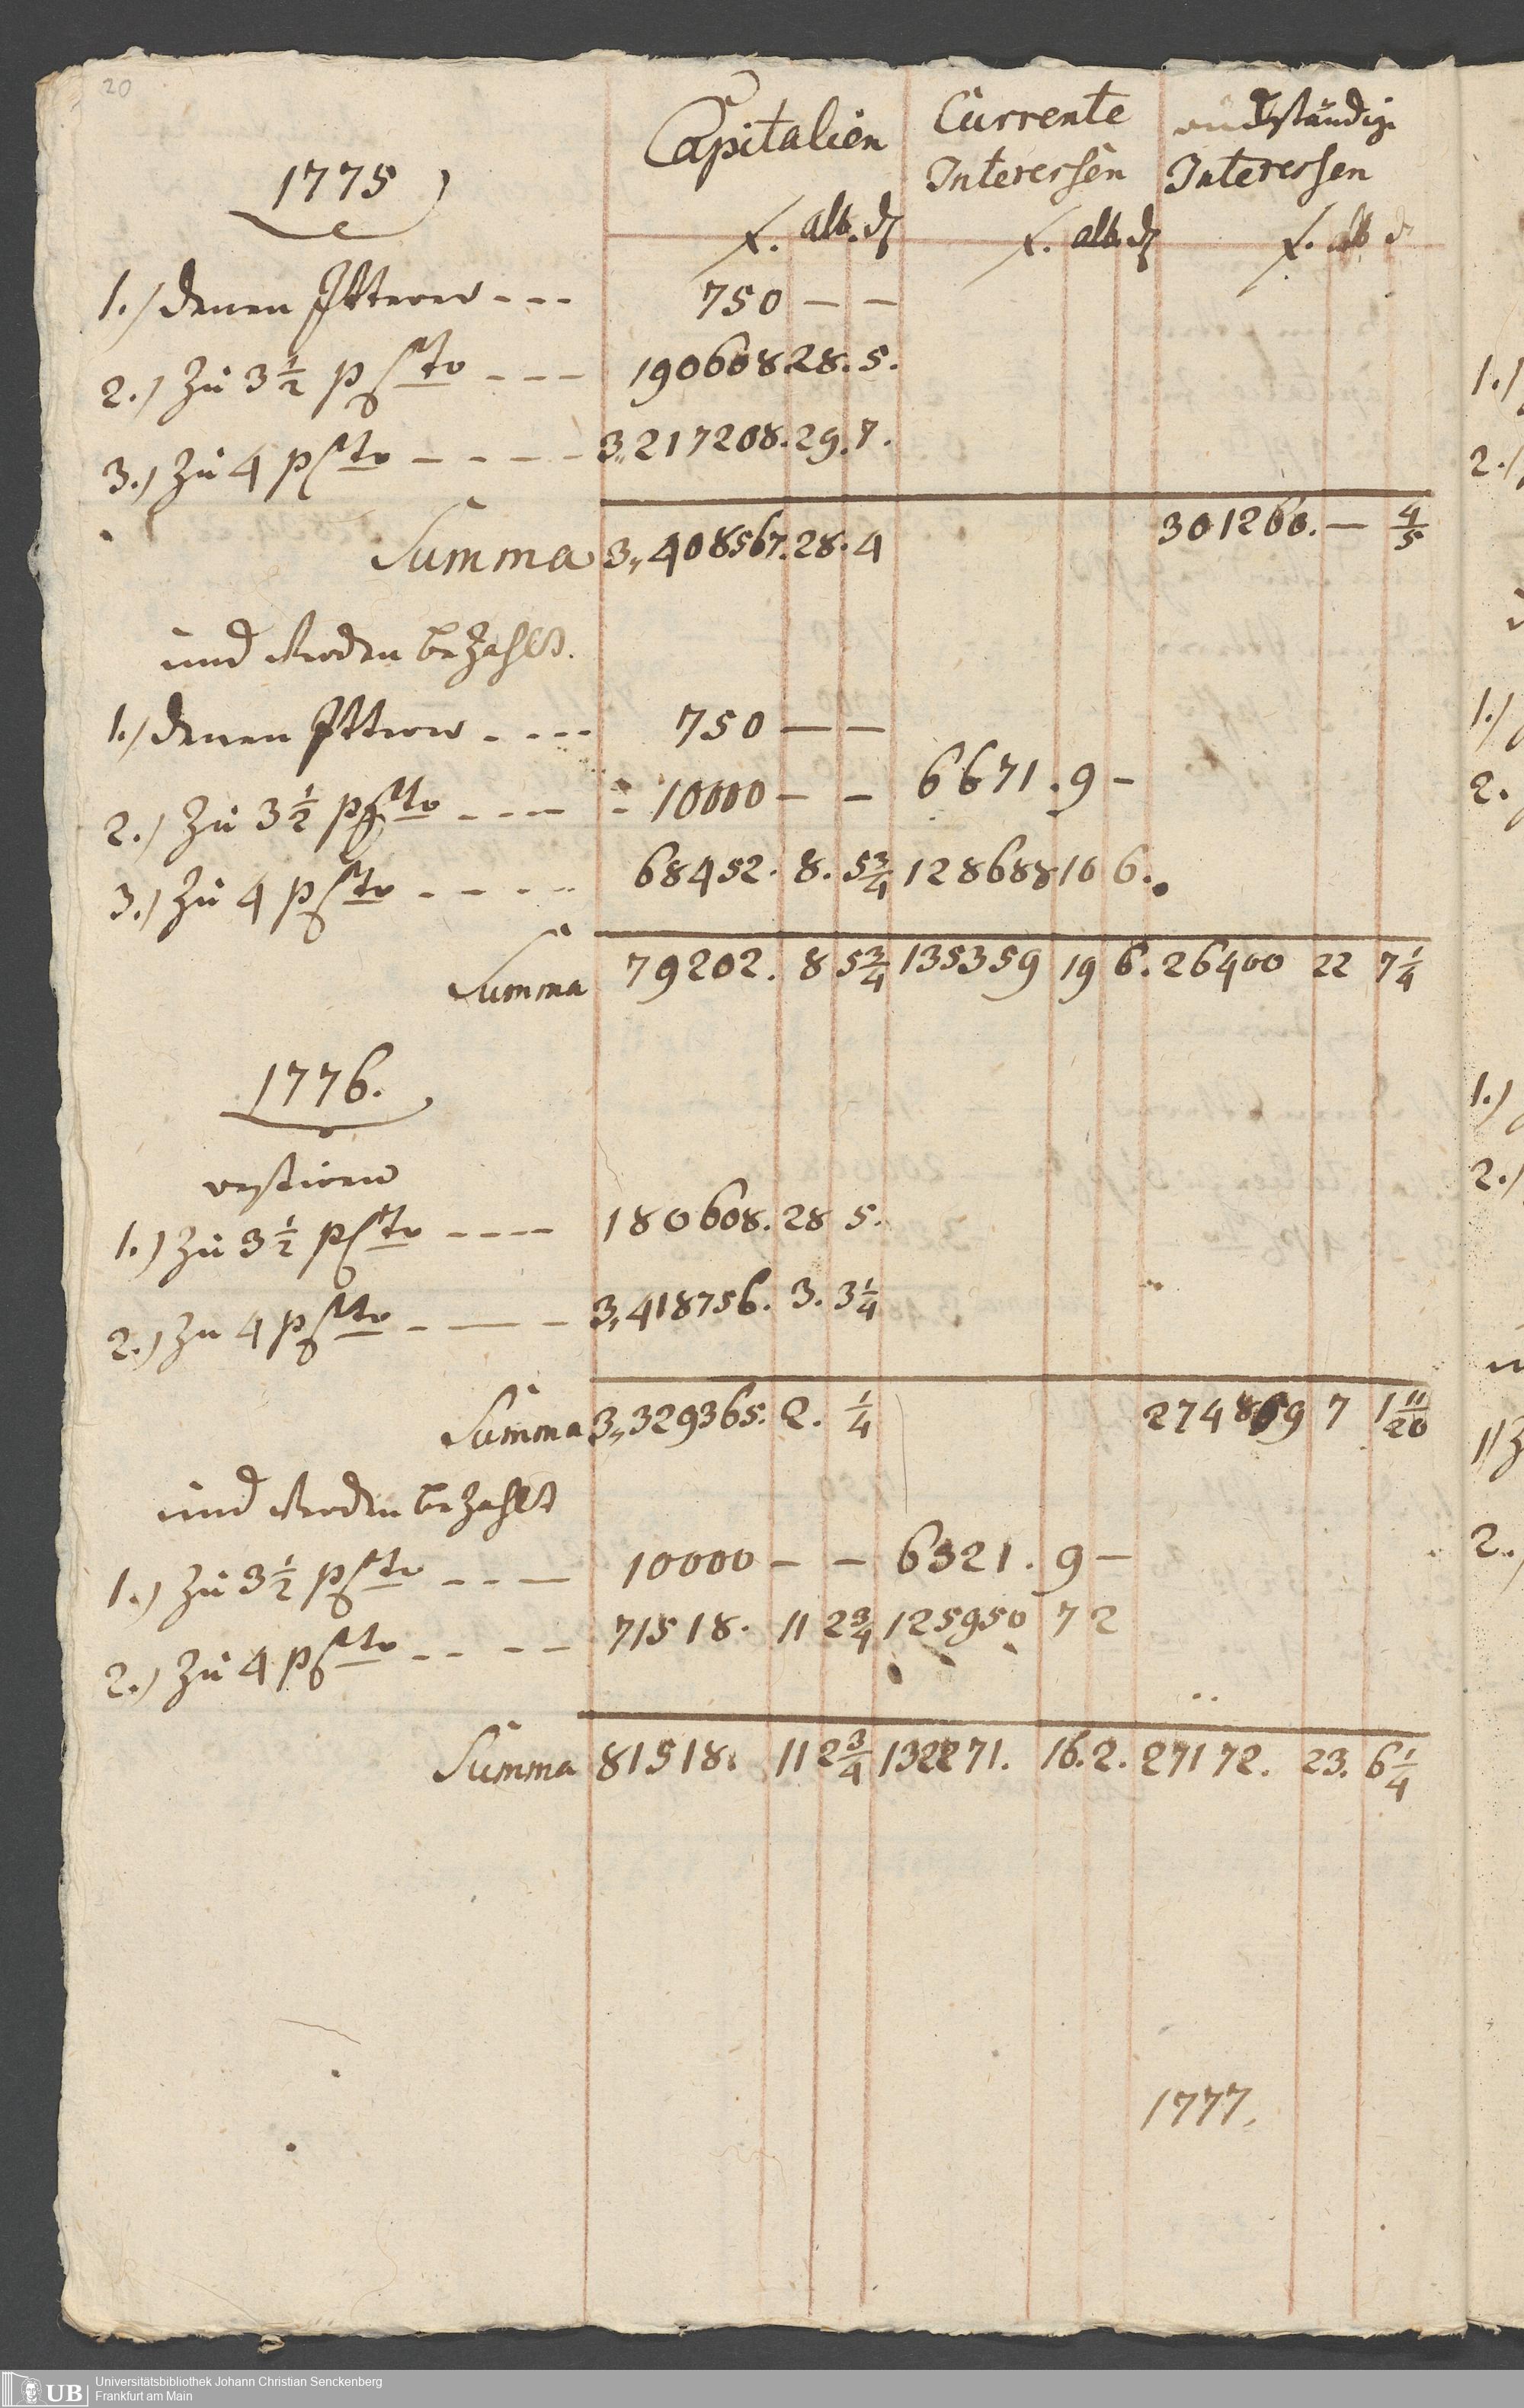 20
Capitalien Currente rückständige
Interessen Interessen
1775
f. alb. d f. alb. d f. alb d
1.) denen --- 750 — —
2.) Zu 3 1/2 pCto --- 190608 28. 5.
3.) Zu 4 pCto ---- 3,,217208. 29. 7.
Summa 3,,408567. 28. 4 301260. — 4/5
und werden bezahlt.
1.) denen ---- 750 — —
2.) Zu 3 1/2 pCto ---- 10000 — — 6671. 9 —
3.) Zu 4 pCto ---- 68452. 8. 5 3/4 128688 10 6.
Summa 79202. 8 5 3/4 135359 19 6. 26400 22 7 1/4
1776.
restiren
1.) Zu 3 1/2 pCto ---- 180608. 28 5.
2.) Zu 4 pCto --- 3,418756. 3. 3 1/4
Summa 3,,329365. 2. 1/4 274859 7 1 11/20
und werden bezahlt
1.) Zu 3 1/2 pCto --- 10000 — — 6321. 9 —
2.) Zu 4 pCto ---- 71518. 11 2 3/4 125950 7 2
Summa 81518. 11 2 3/4 132271. 16. 2. 27172. 23. 6 1/4
1777.
1.)
2.)
1.)
2.
1.)
2.)
1)
2.)
UB
Universitätsbibliothek Johann Christian Senckenberg
Frankfurt am Main